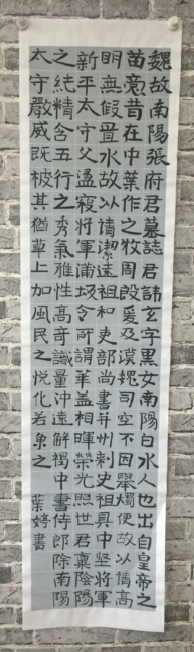 魏故南陽張府君墓誌君諱玄字黑女南陽白水人也出自皇帝之
苗裔昔在中葉作之牧周殷爰及漢魏司空不因舉燭便故以清高
明無假置水故以清潔遠祖和吏部尚書并州刺史祖具中堅將軍
新平太守父盪寇將軍蒲坂令所謂華蓋相暉榮光照世君稟陰陽
之純精含五行之秀氣雅性高奇識量沖遠解褐中書侍郎除南陽
太守嚴威既被其猶草上加風民之悅化若魚之 葉婷書